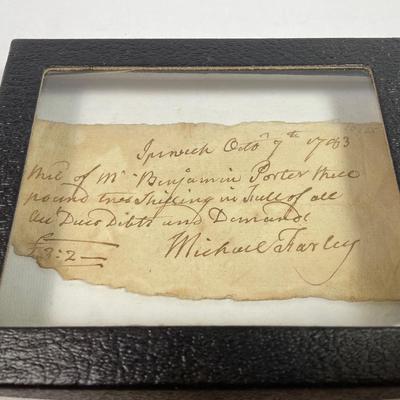 Ipswich Octo 7th 1783
of Mr Benjamin Porter three
pound Shilling in full of all
Due Debts and Demands
£3:2
Michael Farley